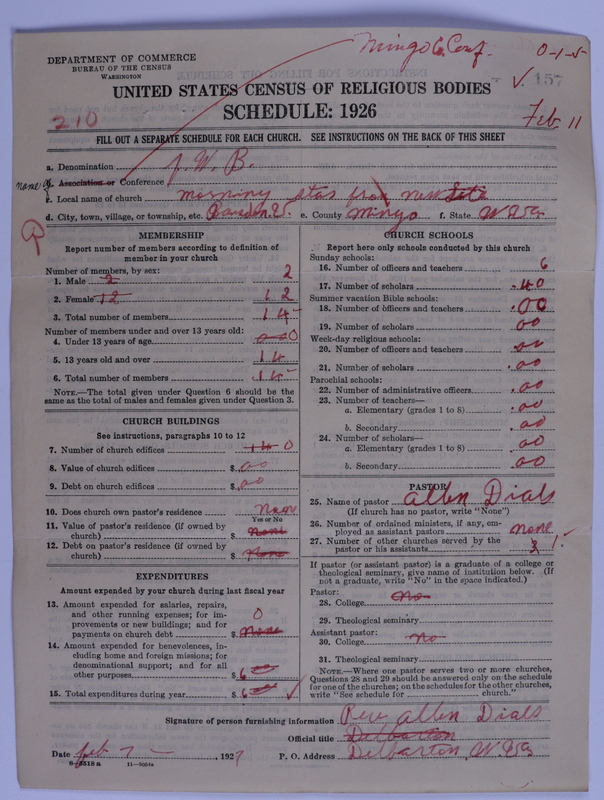 Mingo Co. Conf. 0-1-5
DEPARTMENT OF COMMERCE
BUREAU OF THE CENSUS
WASHINGTON
✓ 157
UNITED STATES CENSUS OF RELIGIOUS BODIES
SCHEDULE: 1926
210
Feb 11
FILL OUT A SEPARATE SCHEDULE FOR EACH CHURCH. SEE INSTRUCTIONS ON THE BACK OF THIS SHEET
a. Denomination F. W. B.
name of b. Association or Conference
c. Local name of church morning star
d. City, town, village, or township, etc. e. County Mingo f. State W Va
MEMBERSHIP
Report number of members according to definition of
member in your church
Number of members, by sex:
1. Male 2 2
2. Female 12 12
3. Total number of members 14
Number of members under and over 13 years old:
4. Under 13 years of age 0
5. 13 years old and over 14
6. Total number of members 14
NOTE.—The total given under Question 6 should be
same as the total of males and females given under Question 3.
CHURCH BUILDINGS
See instructions, paragraphs 10 to 12
7. Number of church edifices 0
8. Value of church edifices $ 00
9. Debt on church edifices $ 00
10. Does church own pastor's residence
Yes or No
11. Value of pastor's residence (if owned by
church) $ None
12. Debt on pastor's residence (if owned by
church) $ None
EXPENDITURES
Amount expended by your church during last fiscal year
13. Amount expended for salaries, repairs,
and other running expenses; for im-
provements or new buildings; and for
payments on church debt $ None 0
14. Amount expended for benevolences, in-
cluding home and foreign missions; for
denominational support; and for all
other purposes $ 6
15. Total expenditures during year $ 6 ✓
CHURCH SCHOOLS
Report here only schools conducted by this church
Sunday schools:
16. Number of officers and teachers 6
17. Number of scholars 40
Summer vacation Bible schools:
18. Number of officers and teachers 00
19. Number of scholars 00
Week-day religious schools:
20. Number of officers and teachers 00
21. Number of scholars 00
Parochial schools:
22. Number of administrative officers 00
23. Number of teachers—
a. Elementary (grades 1 to 8) 00
b. Secondary 00
24. Number of scholars—
a. Elementary (grades 1 to 8) 00
b. Secondary 00
PASTOR
25. Name of pastor Allen Dials
(If church has no pastor, write "None")
26. Number of ordained ministers, if any, em-
ployed as assistant pastors none
27. Number of other churches served by the
pastor or his assistants 1
If pastor (or assistant pastor) is a graduate of a college or
theological seminary, give name of institution below. (If
not a graduate, write "No" in the space indicated.)
Pastor:
28. College No
29. Theological seminary
Assistant pastor:
30. College no
31. Theological seminary
NOTE.—Where one pastor serves two or more churches,
Questions 28 and 29 should be answered only on the schedule
for one of the churches; on the schedules for the other churches,
write "See schedule for church."
Signature of person furnishing information Rev Allen Dials
Official title Delbarton
Date feb 7 1927 P. O. Address Delbarton, W. Va
8-5518 a 11-9054a